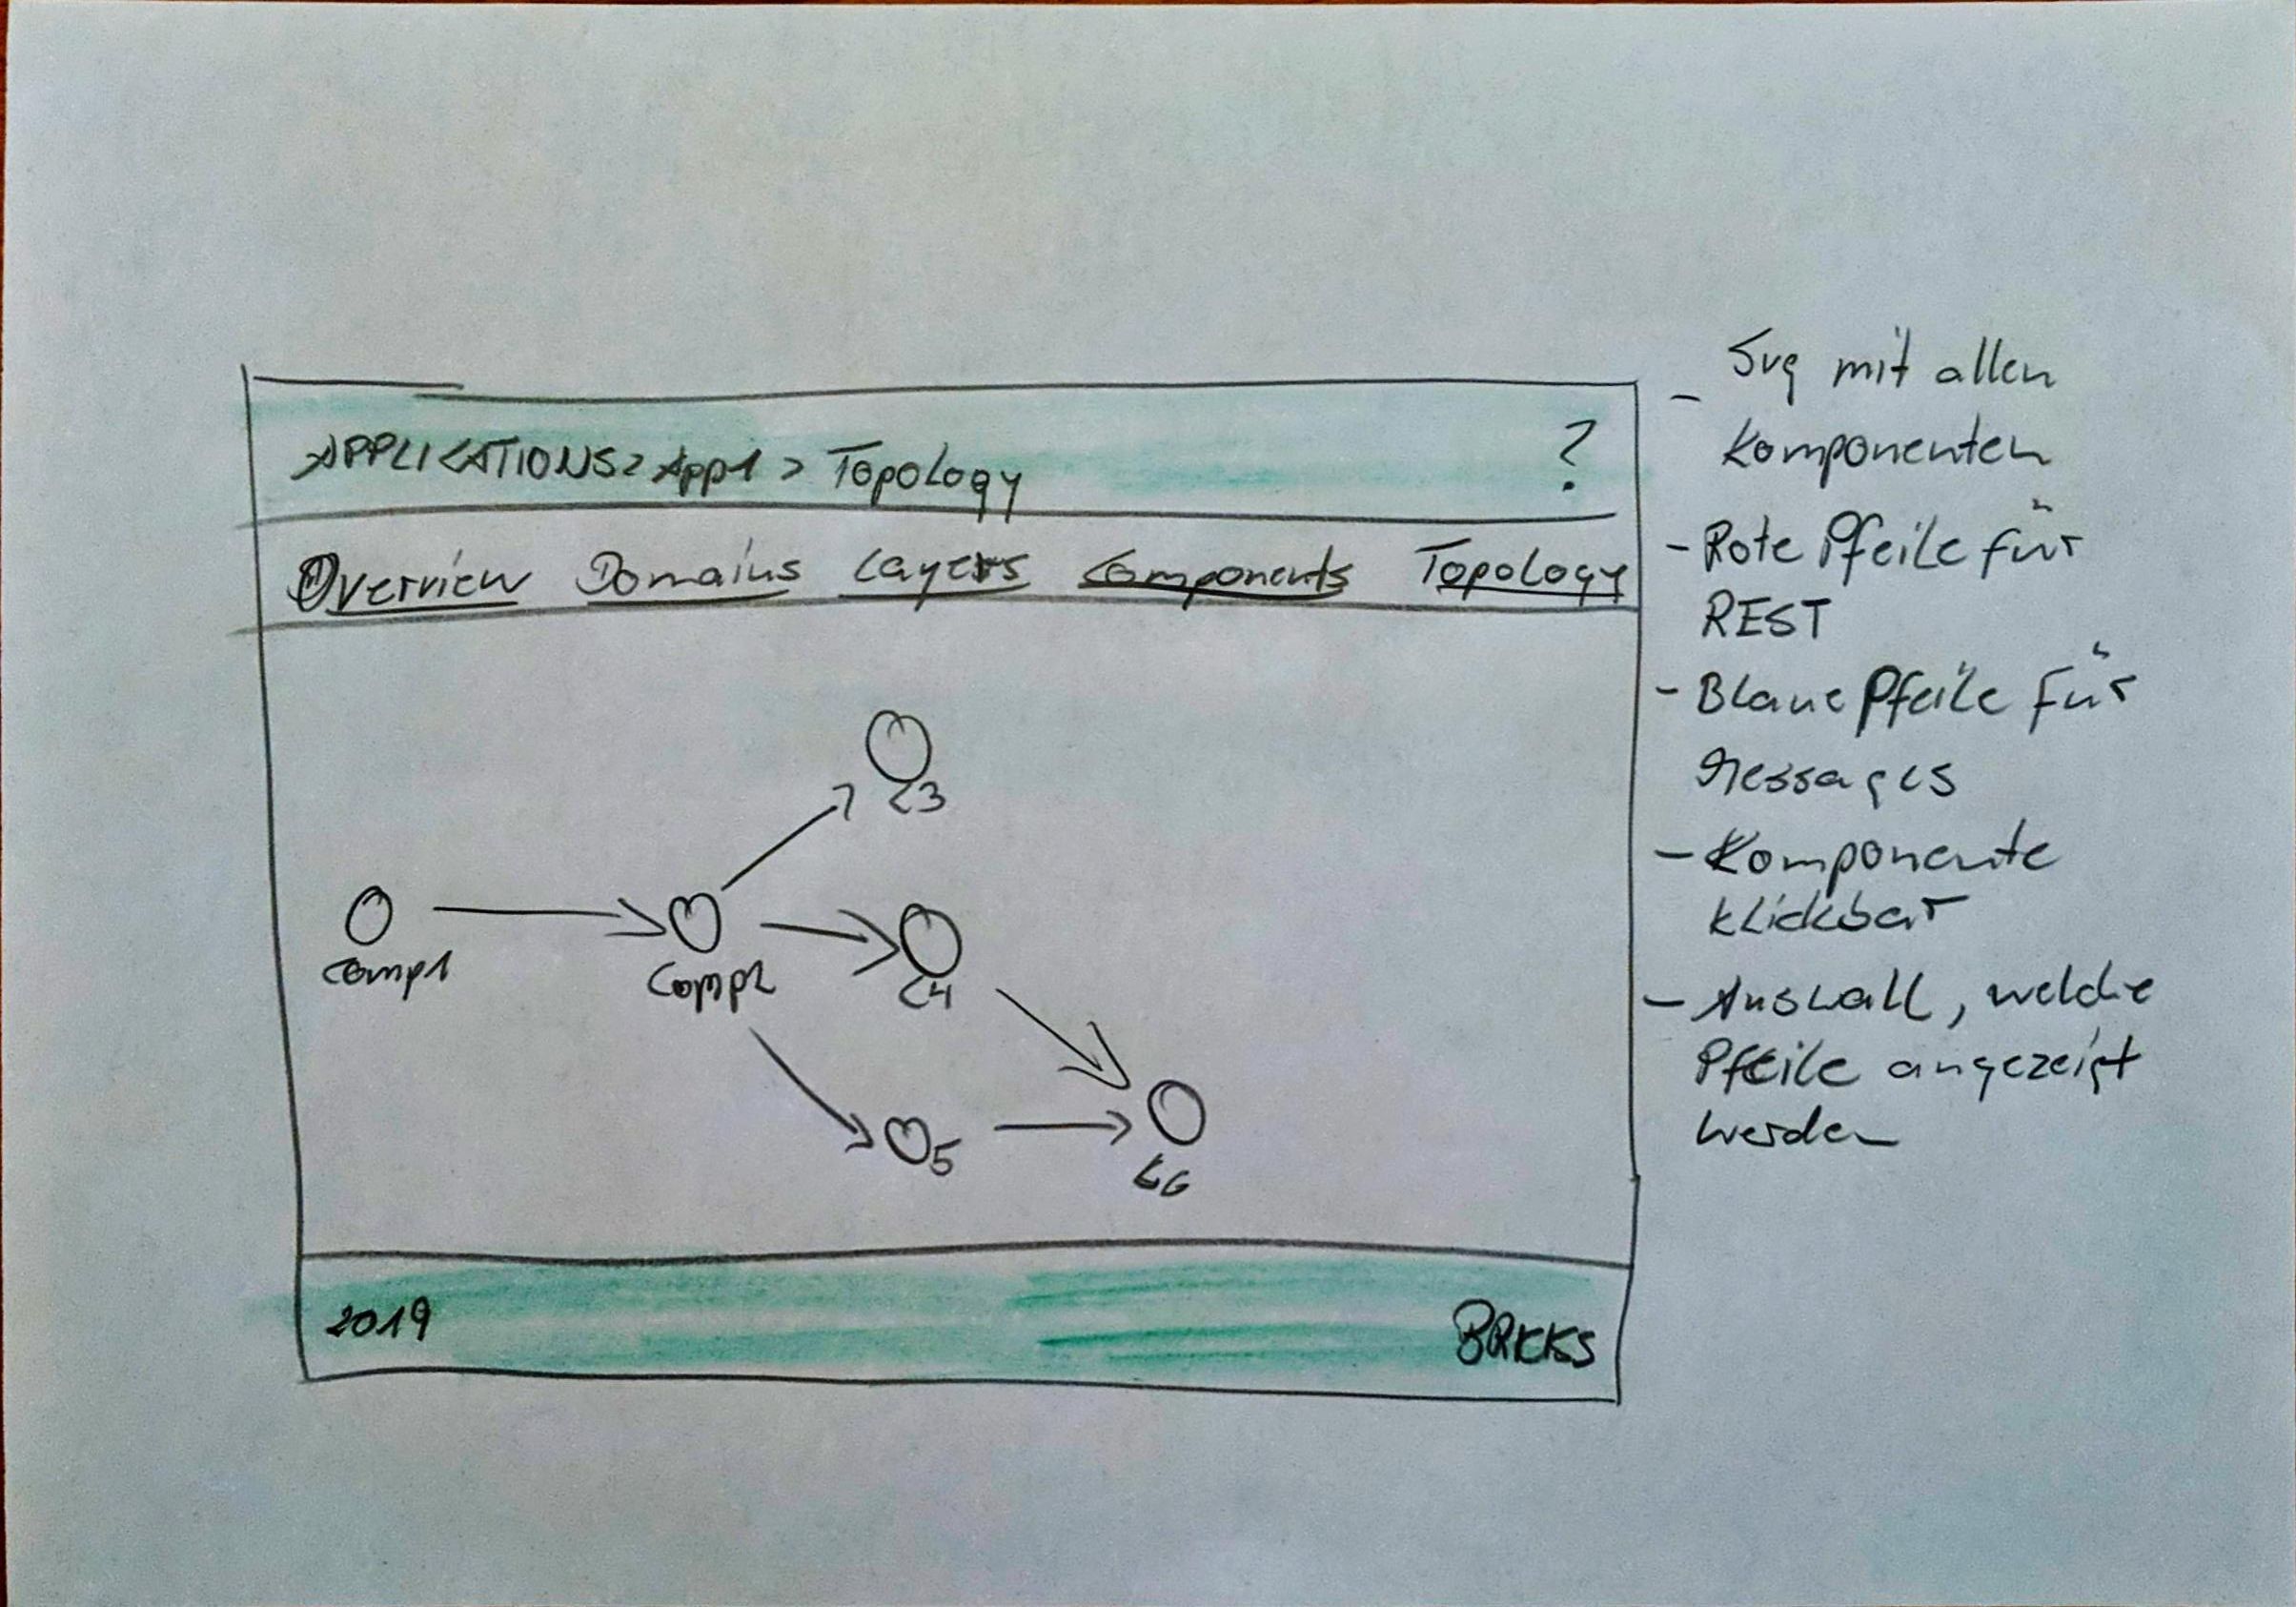 APPLICATIONS > App1 > Topology ?
Overview Domains Layers Components Topology
C3
Comp1
Comp2
C4
5
C6
2019
BRICKS
- Svg mit allen
Komponenten
- Rote Pfeile für
REST
- Blaue Pfeile für
Messages
- Komponente
klickbar
- Auswall, welche
Pfeile angezeigt
werden